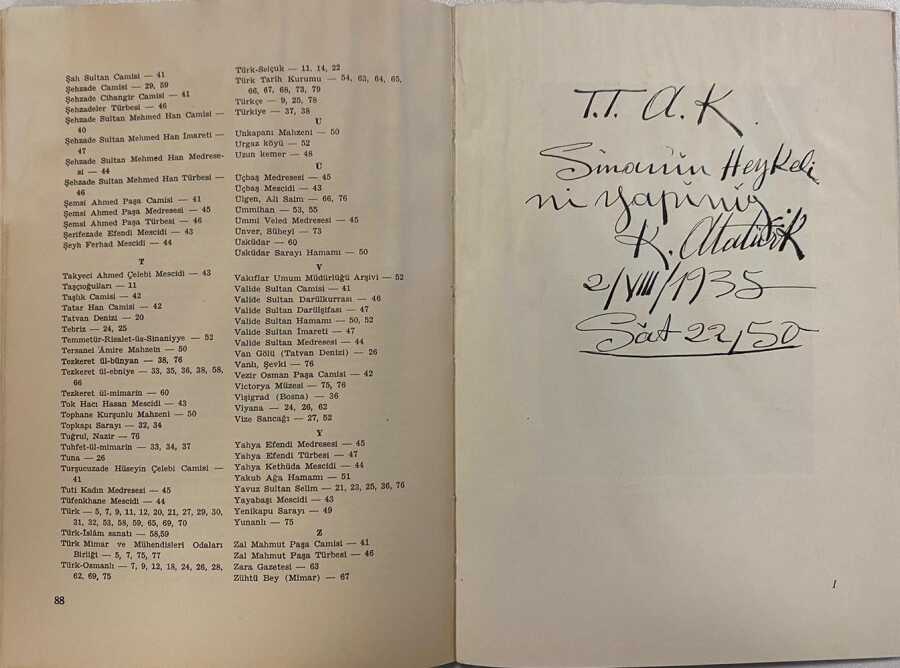 Şah Sultan Camisi — 41
Şehzade Camisi — 29, 59
Şehzade Cihangir Camisi — 41
Şehzadeler Türbesi — 46
Şehzade Sultan Mehmed Han Camisi —
40
Şehzade Sultan Mehmed Han İmareti —
47
Şehzade Sultan Mehmed Han Medrese-
si — 44
Şehzade Sultan Mehmed Han Türbesi —
46
Şemsi Ahmet Paşa Camisi — 41
Şemsi Ahmet Paşa Medresesi — 45
Şemsi Ahmet Paşa Türbesi — 46
Şerifezade Efendi Mescidi — 43
Şeyh Ferhad Mescidi — 44
T
Takyeci Ahmed Çelebi Mescidi — 43
Taşçıoğulları — 11
Taşlık Camisi — 42
Tatar Han Camisi — 42
Tatvan Denizi — 20
Tebriz — 24, 25
Temmetür-Risalet-üs-Sinaniyye — 52
Tersanei Âmire Mahzein — 50
Tezkeret ül-bünyan — 38, 76
Tezkeret ül-ebniye — 33, 35, 36, 38, 58,
66
Tezkeret ül-mimarin — 60
Tok Hacı Hasan Mescidi — 43
Tophane Kurşunlu Mahzeni — 50
Topkapı Sarayı — 32, 34
Tuğrul, Nazir — 76
Tuhfet-ül-mimarin — 33, 34, 37
Tuna — 26
Turşucuzade Hüseyin Çelebi Camisi —
41
Tuti Kadın Medresesi — 45
Tüfenkhane Mescidi — 44
Türk — 5, 7, 9, 11, 12, 20, 21, 27, 29, 30,
31, 32, 53, 58, 59, 65, 69, 70
Türk-İslâm sanatı — 58,59
Türk Mimar ve Mühendisleri Odaları
Birliği — 5, 7, 75, 77
Türk-Osmanlı — 7, 9, 12, 18, 24, 26, 28,
62, 69, 75
88
Türk-Selçuk — 11, 14, 22
Türk Tarih Kurumu — 54, 63, 64, 65,
66, 67, 68, 73, 79
Türkçe — 9, 25, 78
Türkiye — 37, 38
U
Unkapanı Mahzeni — 50
Urgaz köyü — 52
Uzun kemer — 48
Ü
Üçbaş Medresesi — 45
Üçbaş Mescidi — 43
Ülgen, Ali Saim — 66, 76
Ümmihan — 53, 55
Ümmi Veled Medresesi — 45
Ünver, Süheyl — 73
Üsküdar — 60
Üsküdar Sarayı Hamamı — 50
V
Vakıflar Umum Müdürlüğü Arşivi — 52
Valide Sultan Camisi — 41
Valide Sultan Darülkurrası — 46
Valide Sultan Darülşifası — 47
Valide Sultan Hamamı — 50, 52
Valide Sultan İmareti — 47
Valide Sultan Medresesi — 44
Van Gölü (Tatvan Denizi) — 26
Vanlı, Şevki — 76
Vezir Osman Paşa Camisi — 42
Victorya Müzesi — 75, 76
Vişigrad (Bosna) — 36
Viyana — 24, 26, 62
Vize Sancağı — 27, 52
Y
Yahya Efendi Medresesi — 45
Yahya Efendi Türbesi — 47
Yahya Kethüda Mescidi — 44
Yakub Ağa Hamamı — 51
Yavuz Sultan Selim — 21, 23, 25, 36, 76
Yayabaşı Mescidi — 43
Yenikapu Sarayı — 49
Yunanlı — 75
Z
Zal Mahmut Paşa Camisi — 41
Zal Mahmut Paşa Türbesi — 46
Zara Gazetesi — 63
Zühtü Bey (Mimar) — 67
T.T. A.K.
Sinanın Heykeli
ni yapınız
K. Atatürk
2/VIII/1935
Sāt 22/50
I